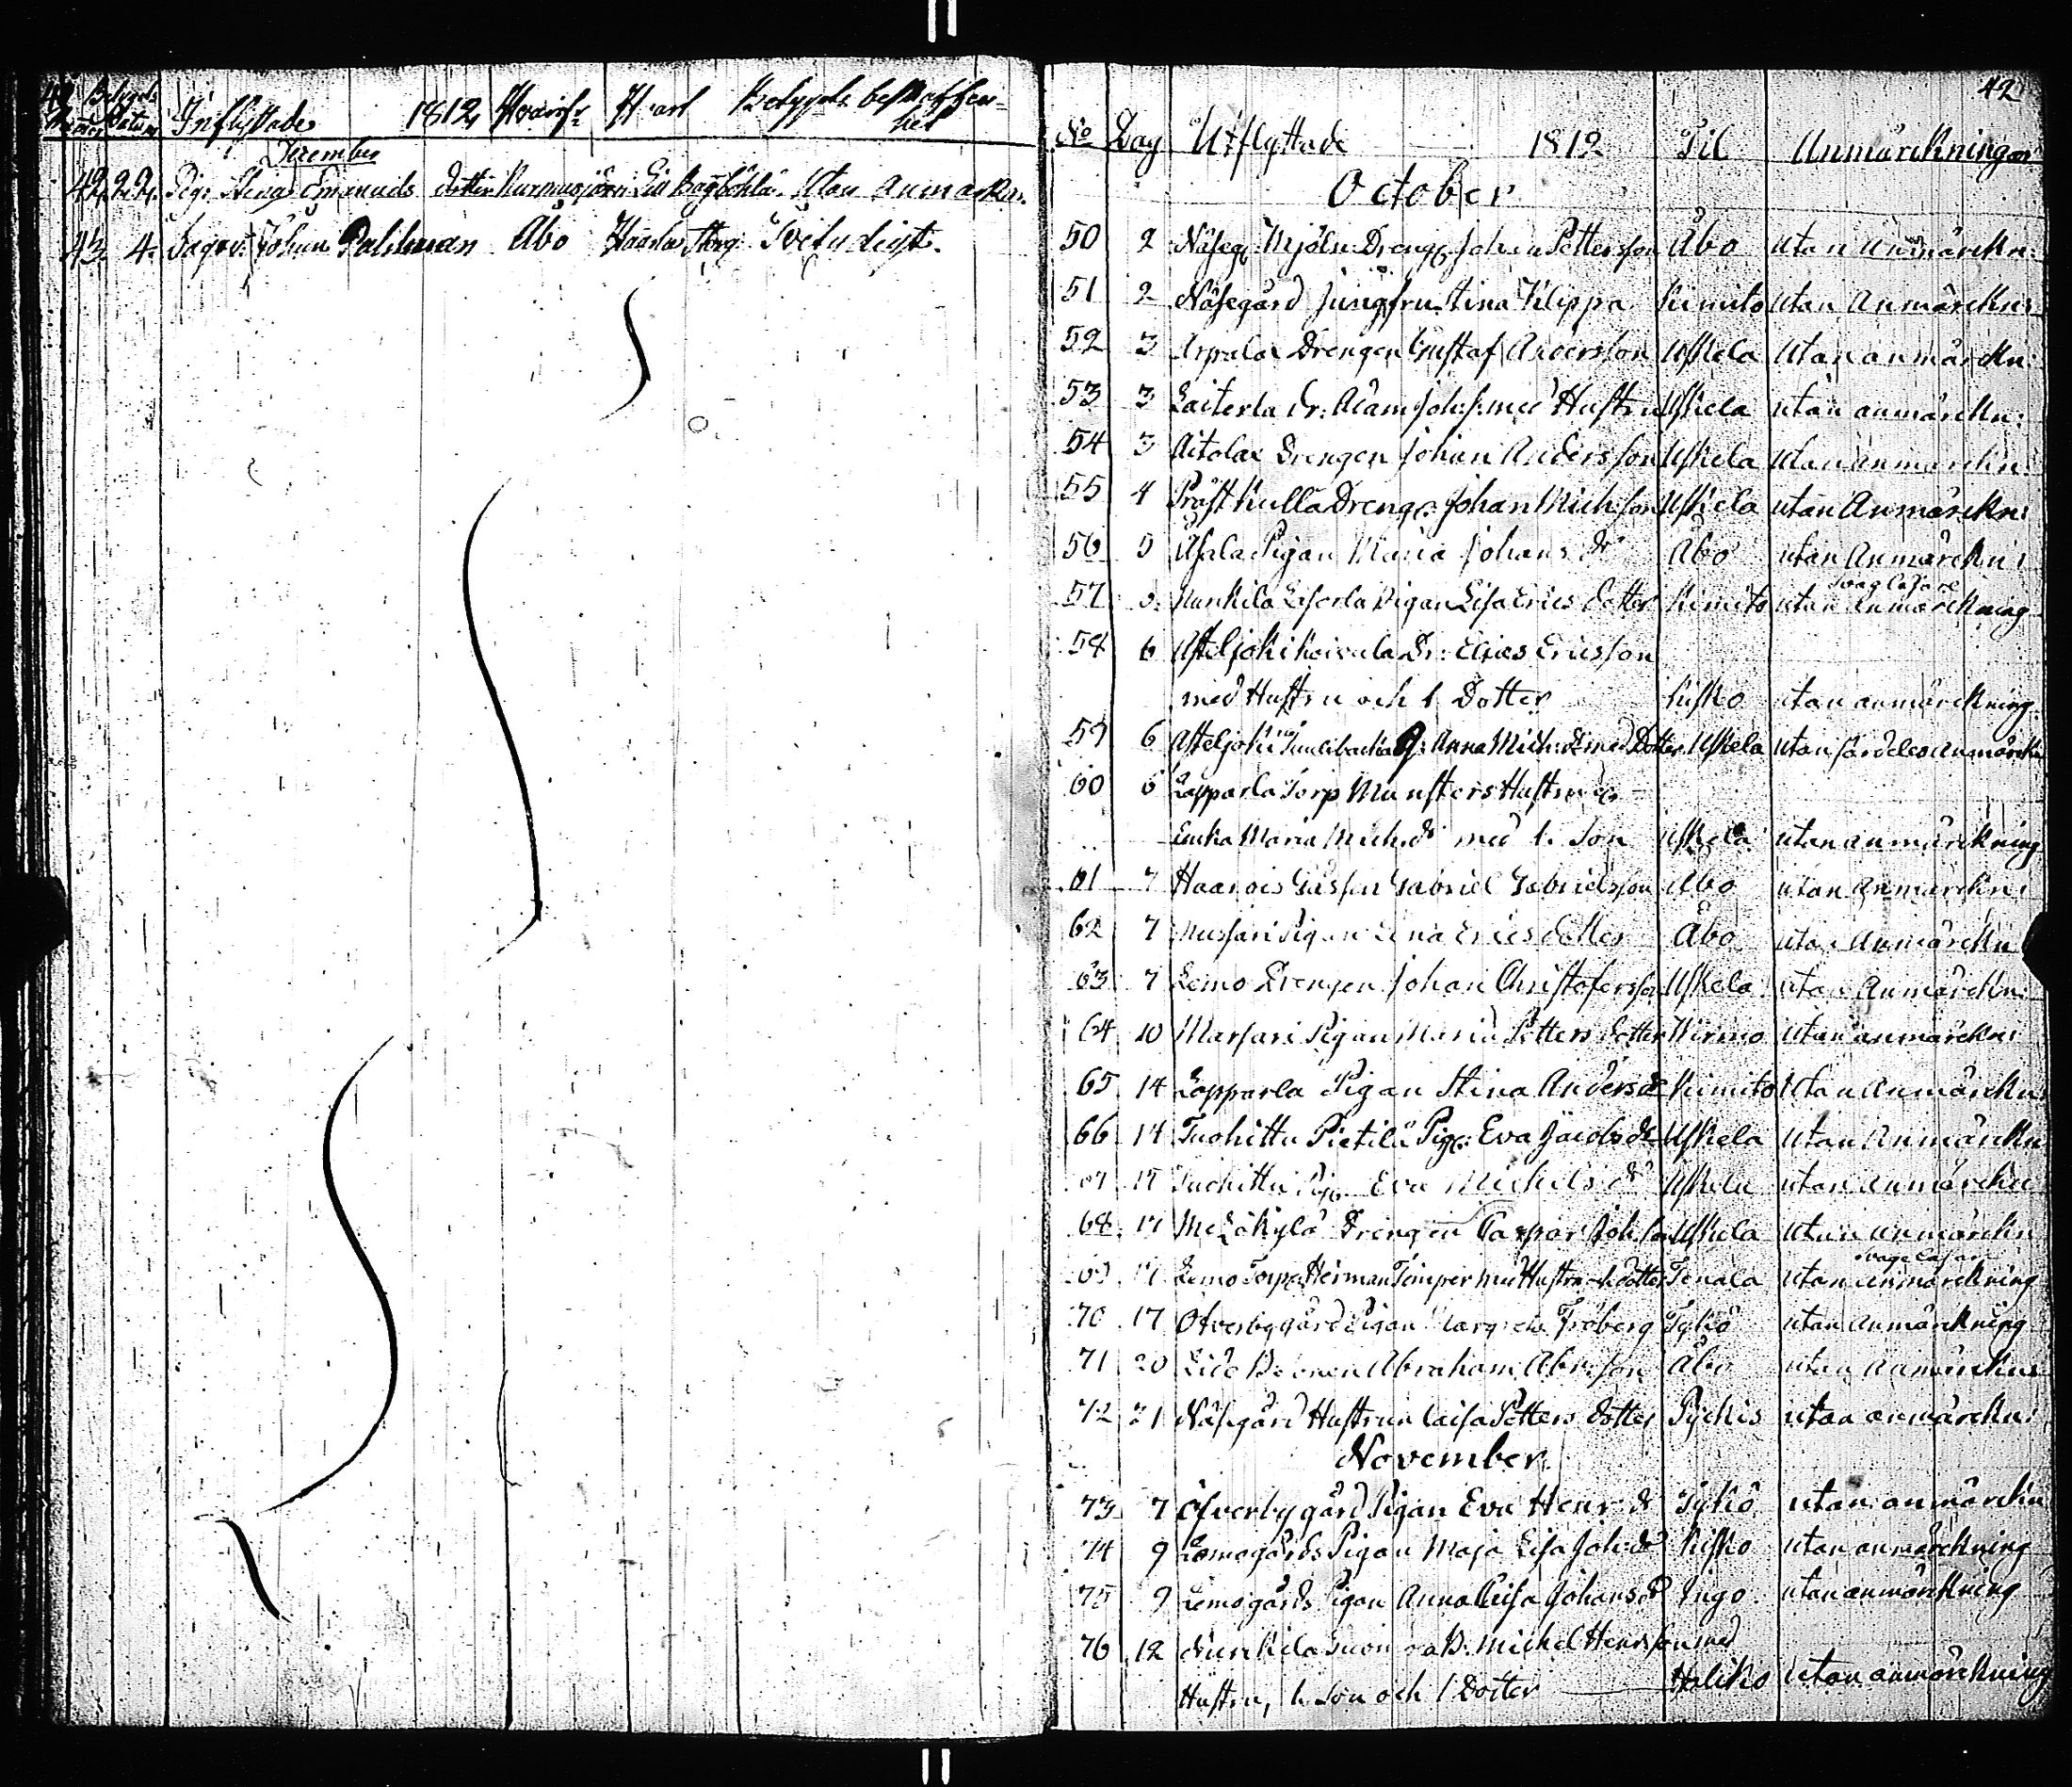 Inflyttade 1812 Hvarifr: Hvart Betygets beskaffen-
het
December
42. 29. Pig: Stina Emanuels dotter Nurmisjärvi Utan anmärkn.
43. 4. Johan Dahlman Åbo Tvetydigt.
42
No Dag Utflyttade 1812 Til Anmärckningar
October
50 2 Näseg: Mjöln: Dreng: Johan Pettersson Åbo utan anmärckn:
51 2 Näsegård Jungfru Stina Filippa Kimito utan Anmärckn:
52 3 Arpalax Drengen Gustaf Andersson Uskela utan anmärckn:
53 3 Laiterla Dr: Adam Joh:s: med Hustru Uskela utan anmärckn:
54 3 Aitolax Drengen Johan Andersson Uskela utan anmärckn:
55 4 Prästkulla Dreng: Johan Mich:son Uskela utan Anmärckn:
56 5 Pigan Maria Johans dr Åbo utan Anmärckn:
svag läsare
57 Nunkila Pigan Lisa Erics dotter Kimito utan anmärckning
58 6 Asteljoki Dr: Elias Ericsson
med Hustru och 1 Dotter Kisko utan anmärckning
59 6 Asteljoki Anna Mich: dr med Dotter Uskela utan särdeles anmärckn
60 6 Lapparla Torp Munsters Hustru
Maria Mich:dr med 1. Son Uskela utan anmärckning
61 7 Haarois Gabriel Gabrielsson Åbo utan Anmärckn:
62 7 Pigan Lena Erics dotter Åbo utan Anmärckn
63 7 Lemo Drengen Johan Christofersson Uskela utan Anmärckn:
64 10 Marsari Pigan Maria Petters dotter Wirmo utan anmärckn:
65 14 Lapparla Pigan Stina Anders dr Kimito Utan Anmärckn:
66 14 Tuohittu Pietilä Pig: Eva Jacobs dr Uskela utan Anmärckn
67 17 Tuohittu Pig: Eva Michels dr Uskela utan anmärckn
68 17 Drengen Caspar Joh:son Uskela utan anmärckn
svag läsare
69 17 Lemo Torp: Herman Timper med Hustru och dotter Tenala utan anmärckning
70 17 Öfverby gård Pigan Margreta Fröberg Tykö utan Anmärckning
71 20 Abraham Abr:son Åbo utan anmärckn:
72 21 Näsegård Hustrun Caisa Petters dotter Pyckis utan anmärckn:
November
73 7 Öfverby gård Pigan Eva Henr: dr Tykö utan anmärckn
74 9 Lemogårds Pigan Maja Lisa Joh:dr Kisko utan anmärckning
75 9 Lemogårds Pigan Anna Caisa Johans dr Ingo utan anmärckning
76 12 Nunkila Michel Henrsson med
Hustru, 1. Son och 1 Dotter Haliko utan anmärckning